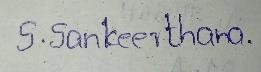 S. Sankeerthana.